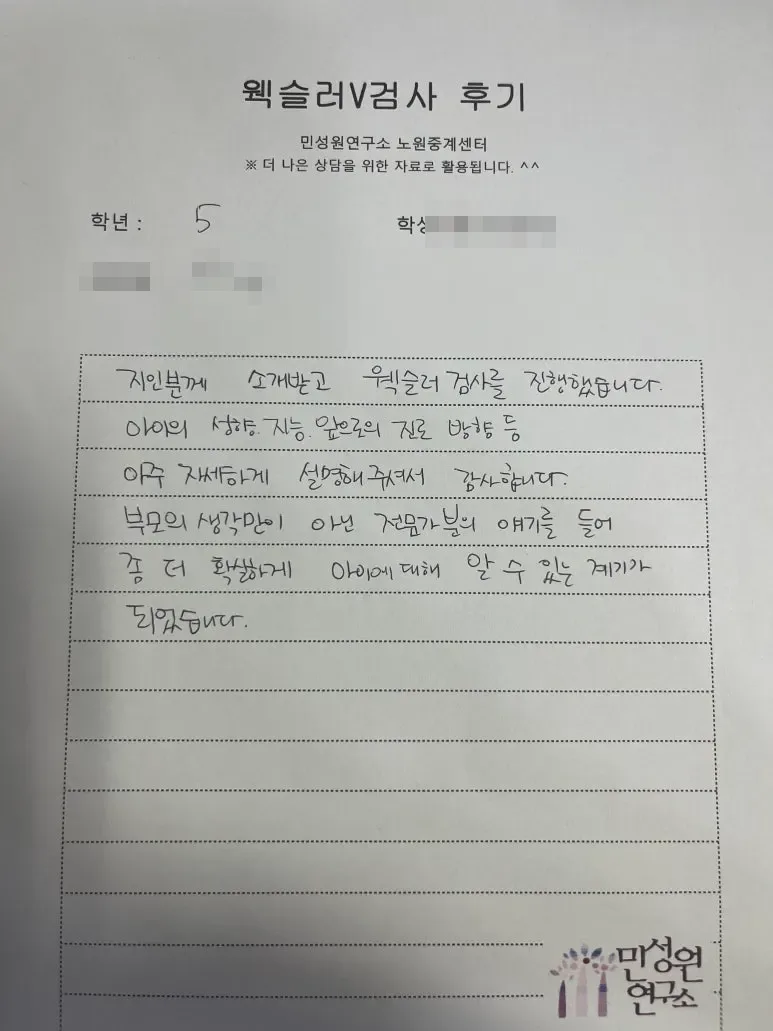 웩슬러V검사 후기
민성원연구소 노원중계센터
※ 더 나은 상담을 위한 자료로 활용됩니다. ^^
학년 : 5
지인분께 소개받고 웩슬러 검사를 진행했습니다.
아이의 성향. 지능. 앞으로의 진로 방향 등
아주 자세하게 설명해주셔서 감사합니다.
부모의 생각만이 아닌 전문가분의 얘기를 들어
좀 더 확실하게 아이에대해 알 수 있는 계기가
되었습니다.
민성원
연구소